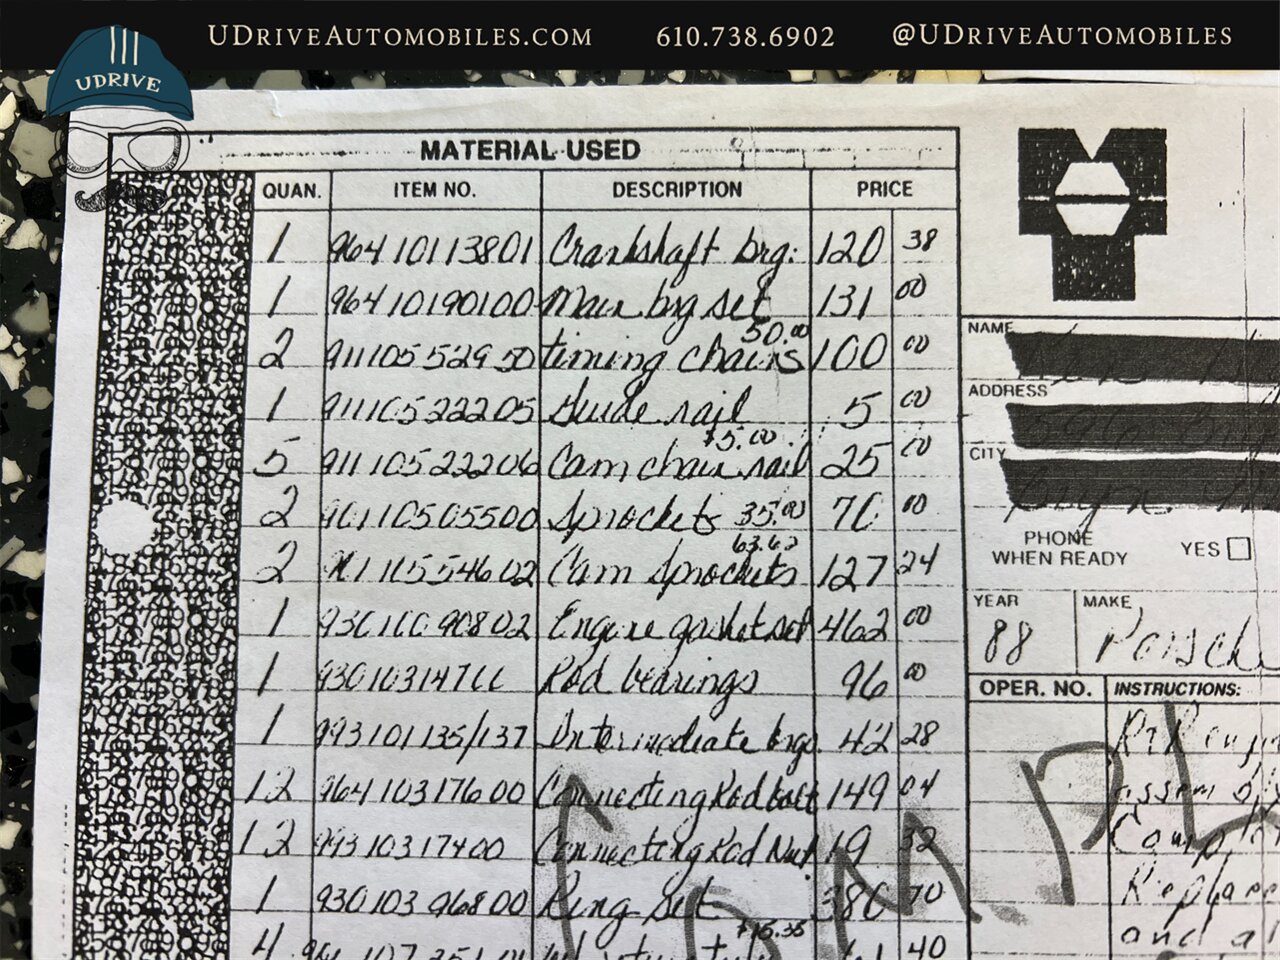 UDriveAutomobiles.com 610.738.6902 @UDriveAutomobiles
UDRIVE
MATERIAL USED
QUAN. ITEM NO. DESCRIPTION PRICE
1 96410113801 Crankshaft brg: 120 38
1 96410190100 Main brg set 131 00
50.00
2 91110552950 timing chains 100 00
1 91110522205 Guide rail 5 00
$5.00
5 91110522206 Cam chain rail 25 00
2 90110505500 Sprockets 35.00 70 00
63.62
2 90110554602 Cam Sprockets 127 24
1 93010090802 Engine gasket set 462 00
1 Rod bearings 96 00
1 993101135/137 Intermediate brgs 42 28
12 96410317600 Connecting Rod bolt 149 04
12 99310317400 Connecting Rod Nut 19 32
1 93010396800 Ring Set 380 70
$15.35
4 61 40
NAME
ADDRESS
CITY
PHONE
WHEN READY YES
YEAR MAKE
88 Porsche
OPER. NO. INSTRUCTIONS:
R+R
Replace
and
COMPL